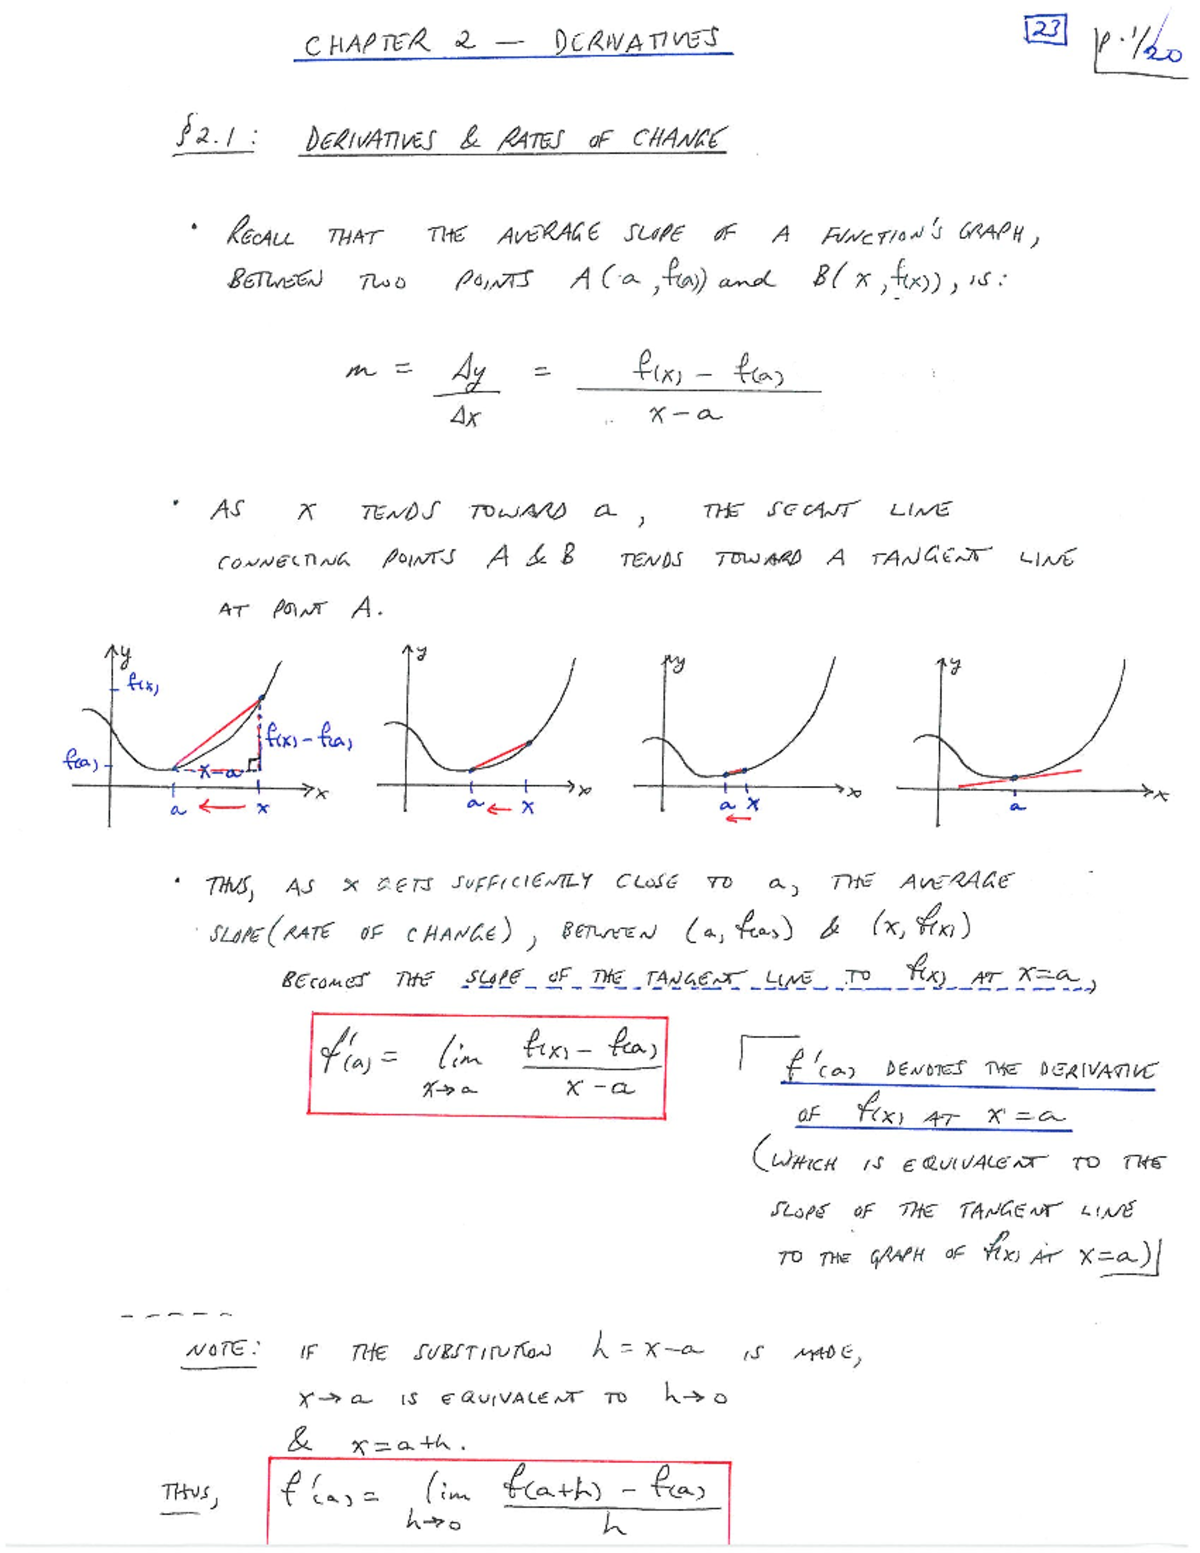 CHAPTER 2 — DERIVATIVES
23
p. 1/20
§2.1: DERIVATIVES & RATES OF CHANGE
• RECALL THAT THE AVERAGE SLOPE OF A FUNCTION'S GRAPH,
BETWEEN TWO POINTS A(a, f(a)) and B(x, f(x)), IS:
m = Δy/Δx = (f(x) - f(a))/(x - a)
• AS x TENDS TOWARD a, THE SECANT LINE
CONNECTING POINTS A & B TENDS TOWARD A TANGENT LINE
AT POINT A.
y f(x) f(a) f(x)-f(a) x-a a x x
y a x x
y a x x
y a x
• THUS, AS x GETS SUFFICIENTLY CLOSE TO a, THE AVERAGE
SLOPE (RATE OF CHANGE), BETWEEN (a, f(a)) & (x, f(x))
BECOMES THE SLOPE OF THE TANGENT LINE TO f(x) AT x=a,
f'(a) = lim x→a (f(x) - f(a))/(x - a)
f'(a) DENOTES THE DERIVATIVE
OF f(x) AT x = a
(WHICH IS EQUIVALENT TO THE
SLOPE OF THE TANGENT LINE
TO THE GRAPH OF f(x) AT x=a)
NOTE: IF THE SUBSTITUTION h = x-a IS MADE,
x→a IS EQUIVALENT TO h→0
& x = a+h.
THUS, f'(a) = lim h→0 (f(a+h) - f(a))/h